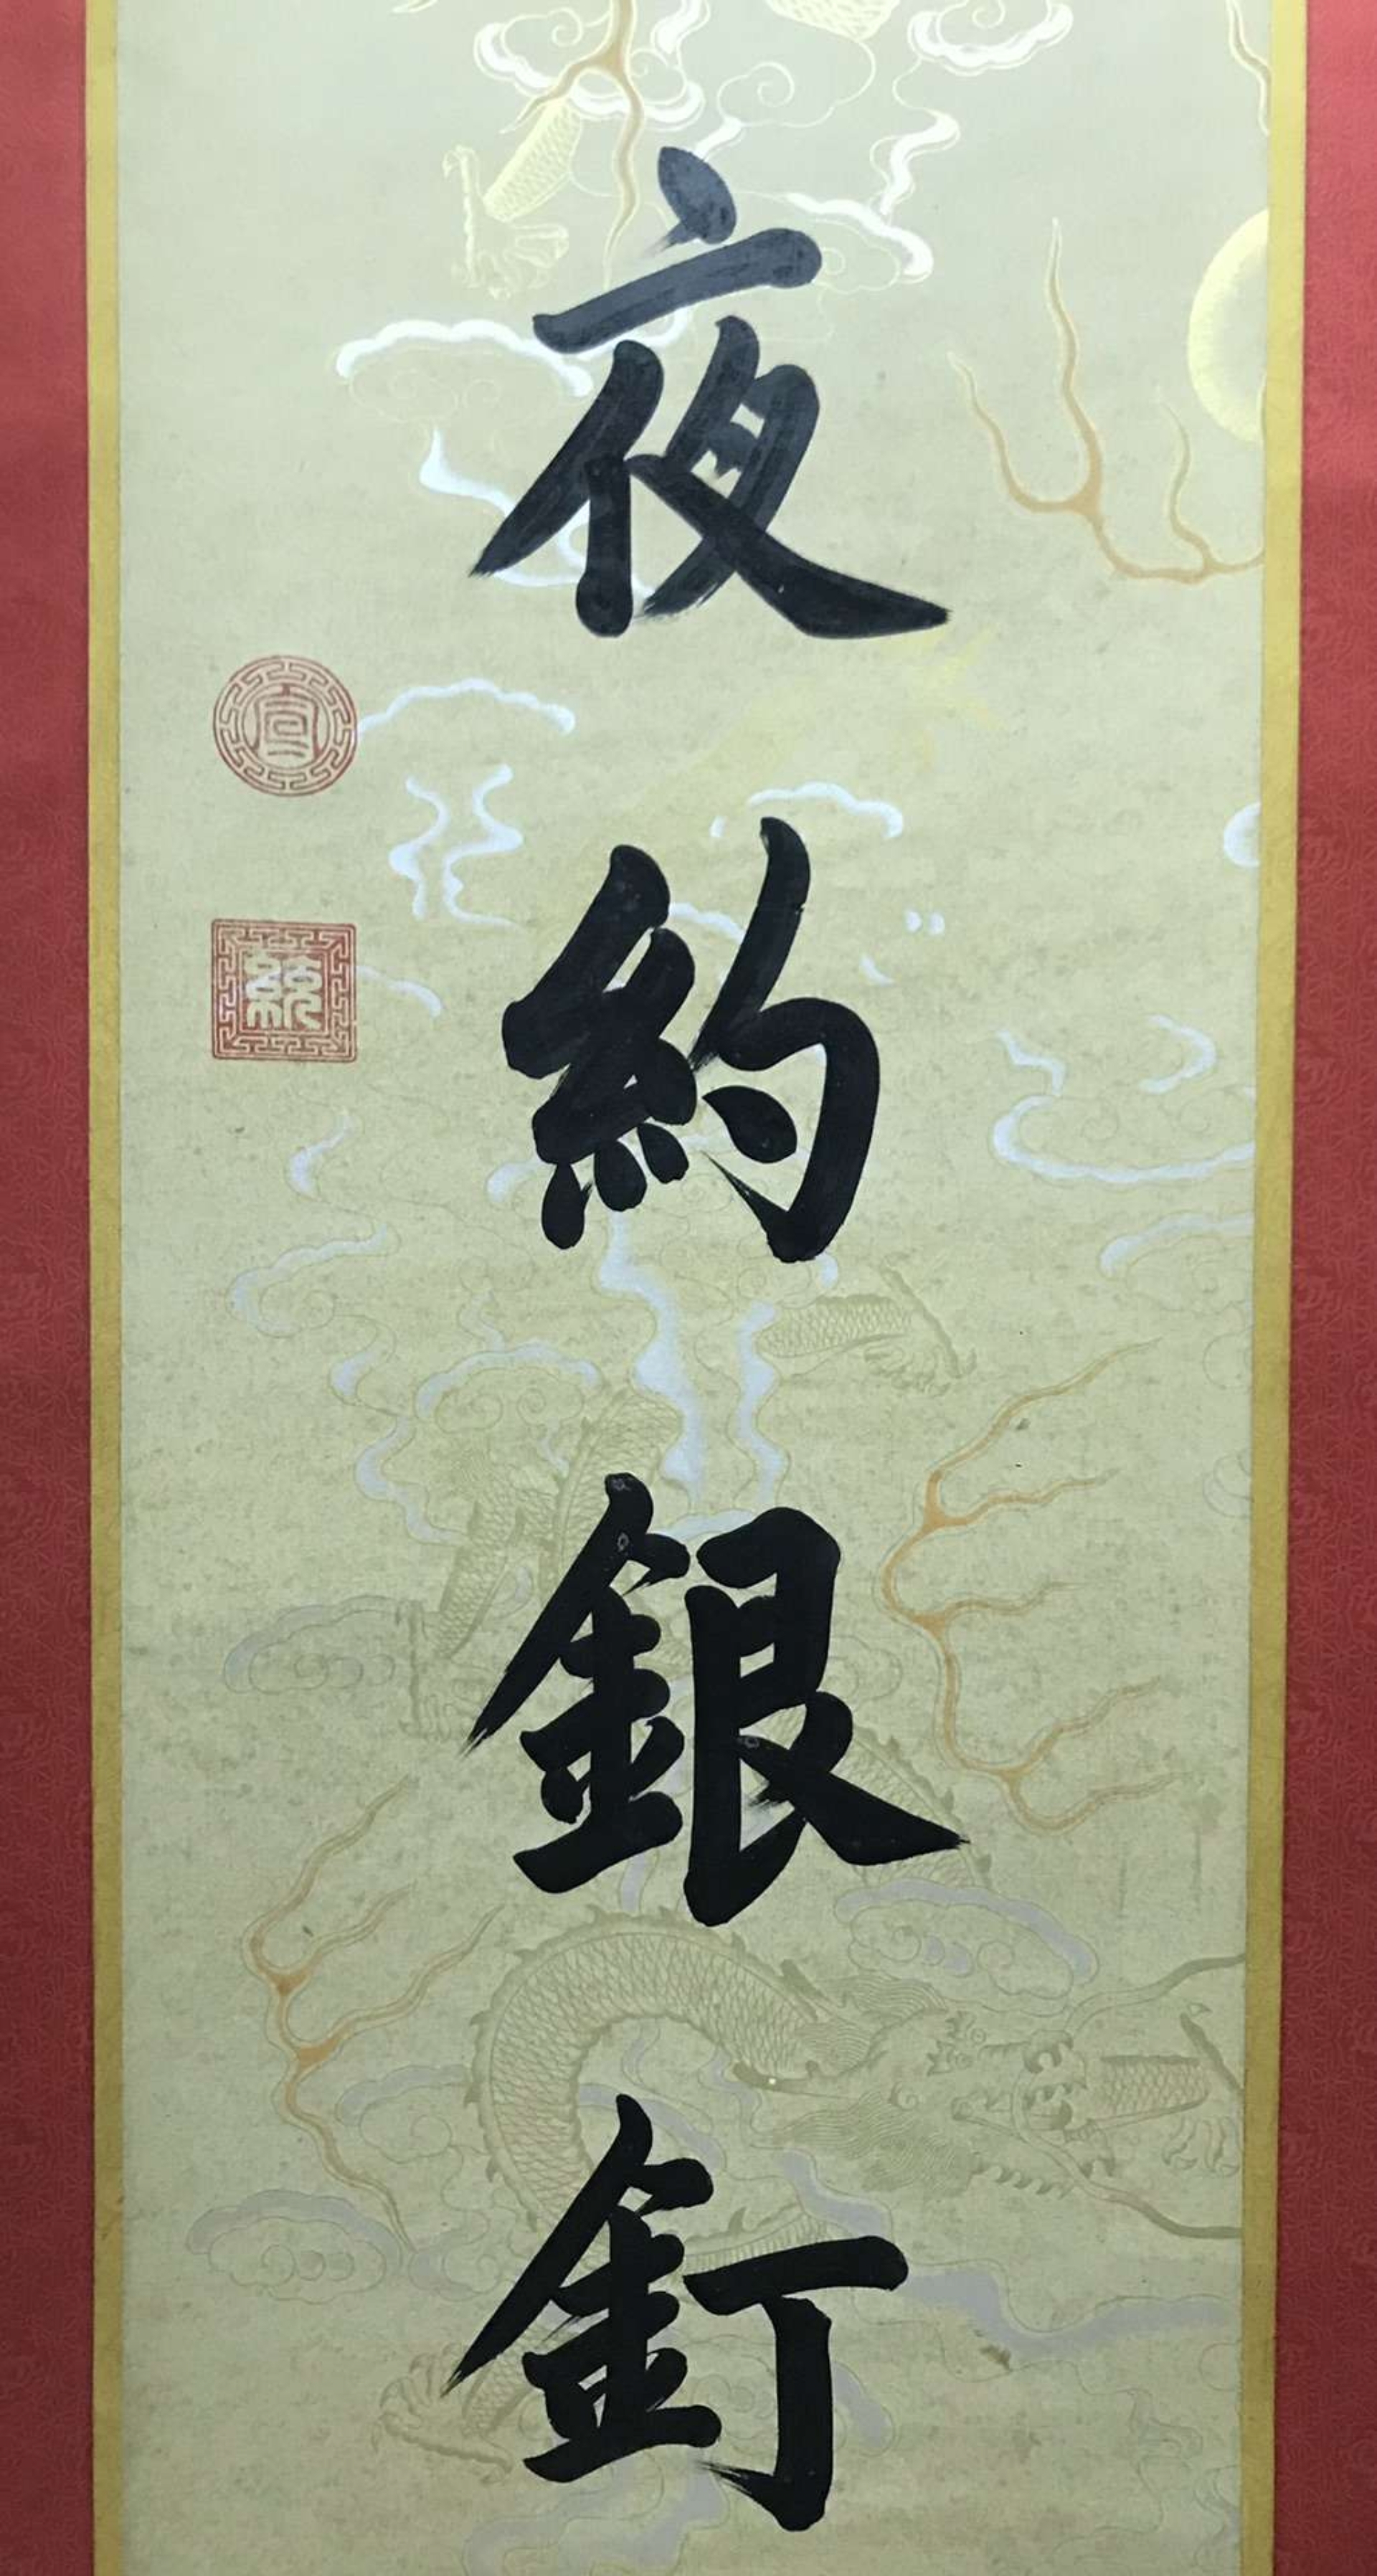 夜約銀釘
宣
統